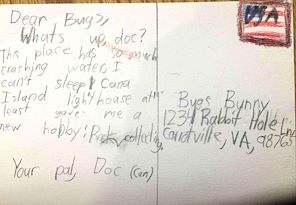 Dear, Bugs,
Whats up, doc?
This place has so much
crashing water, I
can't sleep! Cana
Island lighthouse at
least gave me a
new hobby: Rock collecting.
Your pal, Doc (can)
USA
Bugs Bunny
1234 Rabbit Hole Ln
Carrotville, VA, 98765